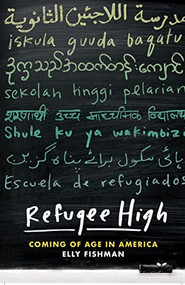 مدرسة اللاجئين الثانوية
iskula guuda baqatu
ဒုက္ခသည်အထက်တန်းကျောင်း
sekolah tinggi pelarian
शरणार्थी उच्च माध्यमिक विद्यालय
Shule ku ya wakimbizi
ہائی سکول برائے پناہ گزیں
Escuela de refugiados
Refugee High
COMING OF AGE IN AMERICA
ELLY FISHMAN